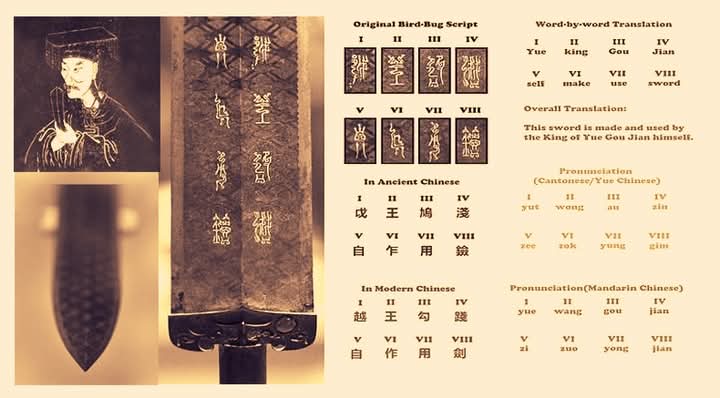 Original Bird-Bug Script
I II III IV
V VI VII VIII
In Ancient Chinese
I II III IV
戉 王 鳩 淺
V VI VII VIII
自 乍 用 鐱
In Modern Chinese
I II III IV
越 王 勾 踐
V VI VII VIII
自 作 用 劍
Word-by-word Translation
I II III IV
Yue king Gou Jian
V VI VII VIII
self make use sword
Overall Translation:
This sword is made and used by
the King of Yue Gou Jian himself.
Pronunciation
(Cantonese/Yue Chinese)
I II III IV
yut wong au zin
V VI VII VIII
zee zok yung gim
Pronunciation(Mandarin Chinese)
I II III IV
yue wang gou jian
V VI VII VIII
zi zuo yong jian